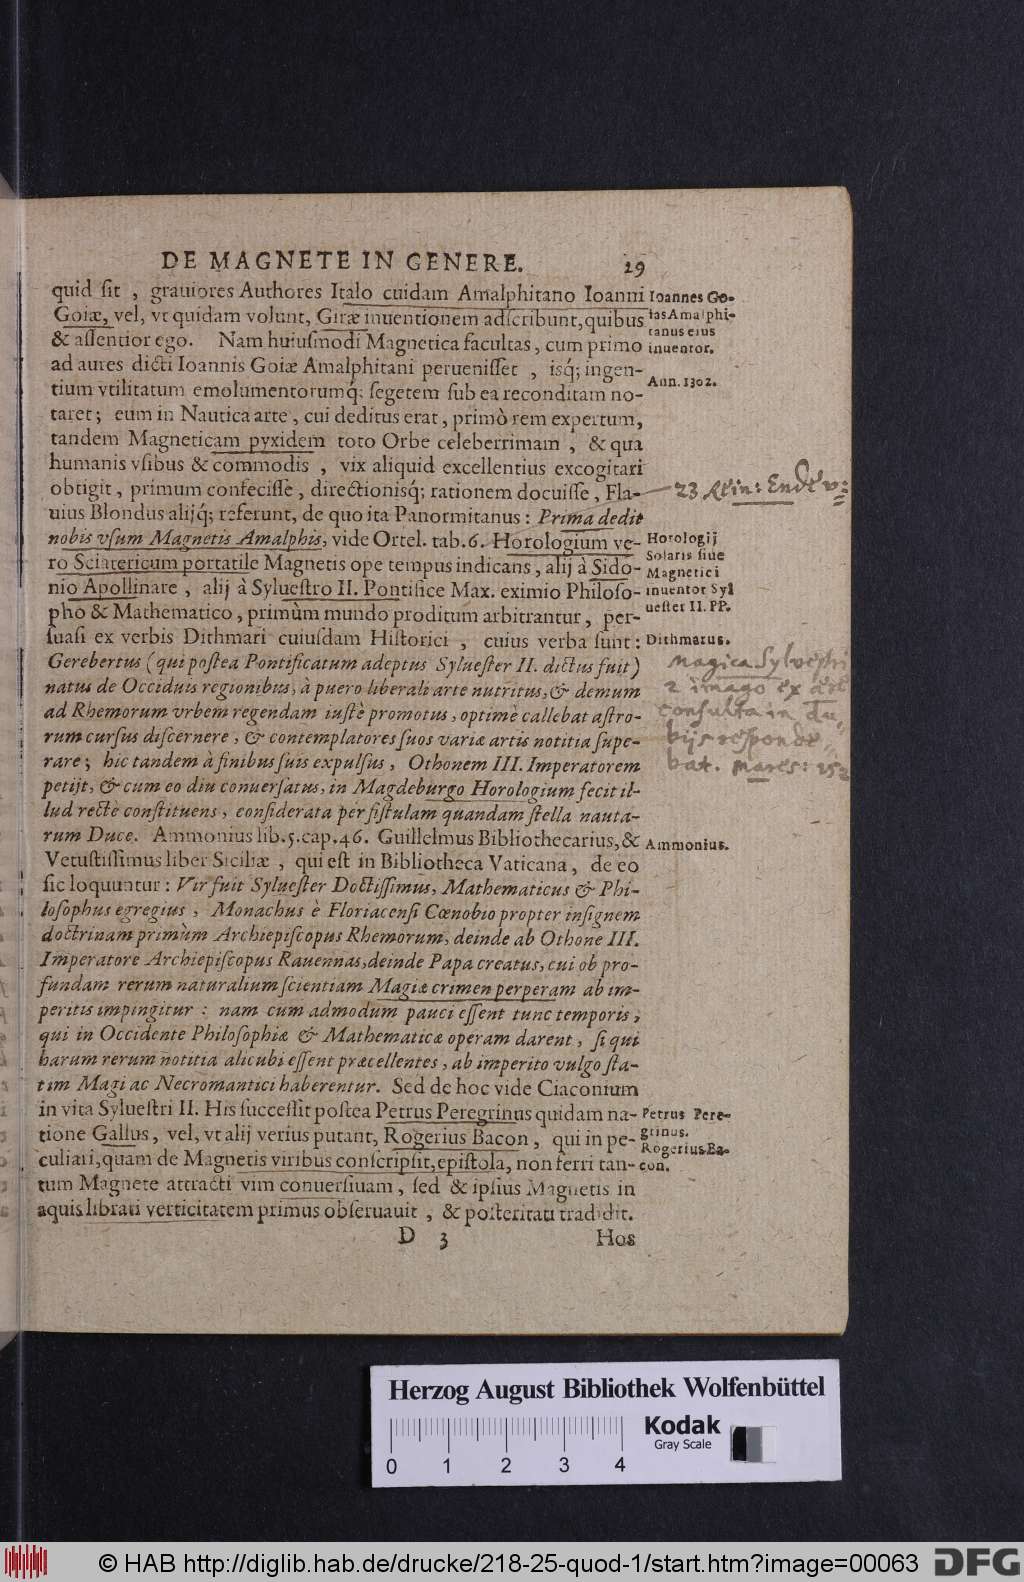 DE MAGNETE IN GENERE. 29
quid ſit , grauiores Authores Italo cuidam Amalphitano Ioanni
Goiæ, vel, vt quidam volunt, Giræ inuentionem adſcribunt, quibus
& aſſentior ego. Nam huiuſmodi Magnetica facultas, cum primo
ad aures dicti Ioannis Goiæ Amalphitani perueniſſet , isq́; ingen-
tium vtilitatum emolumentorumq́; ſegetem ſub ea reconditam no-
taret; eum in Nautica arte, cui deditus erat, primò rem expertum,
tandem Magneticam pyxidem toto Orbe celeberrimam , & qua
humanis vſibus & commodis , vix aliquid excellentius excogitari
obtigit, primum confeciſſe, directionisq́; rationem docuiſſe, Fla-
uius Blondus alijq́; referunt, de quo ita Panormitanus: Prima dedit
nobis vſum Magnetis Amalphis, vide Ortel. tab. 6. Horologium ve-
ro Sciatericum portatile Magnetis ope tempus indicans, alij à Sido-
nio Apollinare , alij à Sylueſtro II. Pontifice Max. eximio Philoſo-
pho & Mathematico, primùm mundo proditum arbitrantur, per-
ſuaſi ex verbis Dithmari cuiuſdam Hiſtorici , cuius verba ſunt:
Gerebertus (qui poſtea Pontificatum adeptus Sylueſter II. dictus fuit)
natus de Occiduis regionibus, à puero liberali arte nutritus, & demum
ad Rhemorum vrbem regendam iuſtè promotus, optimè callebat aſtro-
rum curſus diſcernere, & contemplatores ſuos variæ artis notitia ſupe-
rare; hic tandem à finibus ſuis expulſus, Othonem III. Imperatorem
petijt, & cum eo diu conuerſatus, in Magdeburgo Horologium fecit il-
lud rectè conſtituens, conſiderata per fiſtulam quandam ſtella nauta-
rum Duce. Ammonius lib. 5. cap. 46. Guillelmus Bibliothecarius, &
Vetuſtiſſimus liber Siciliæ , qui eſt in Bibliotheca Vaticana, de eo
ſic loquuntur: Vir fuit Sylueſter Doctiſſimus, Mathematicus & Phi-
loſophus egregius , Monachus è Floriacenſi Cœnobio propter inſignem
doctrinam primùm Archiepiſcopus Rhemorum, deinde ab Othone III.
Imperatore Archiepiſcopus Rauennas, deinde Papa creatus, cui ob pro-
fundam rerum naturalium ſcientiam Magiæ crimen perperam ab im-
peritis impingitur : nam cum admodum pauci eſſent tunc temporis,
qui in Occidente Philoſophiæ & Mathematicæ operam darent, ſi qui
harum rerum notitia alicubi eſſent præcellentes, ab imperito vulgo ſta-
tim Magi ac Necromantici haberentur. Sed de hoc vide Ciaconium
in vita Sylueſtri II. His ſucceſſit poſtea Petrus Peregrinus quidam na-
tione Gallus, vel, vt alij verius putant, Rogerius Bacon, qui in pe-
culiari, quam de Magnetis viribus conſcripſit, epiſtola, non ferri tan-
tum Magnete attracti vim conuerſiuam, ſed & ipſius Magnetis in
aquis librati verticitatem primus obſeruauit , & poſteritati tradidit.
D 3 Hos
Ioannes Go-
ias Amalphi-
tanus eius
inuentor.
Ann. 1302.
23
Horologij
Solaris ſiue
Magnetici
inuentor Syl
ueſter II. PP.
Dithmarus.
Magica Sylvestri
2 imago ex
consulta in du-
bijs responde-
bat.
Ammonius.
Petrus Pere-
grinus.
Rogerius Ba-
con.
Herzog August Bibliothek Wolfenbüttel
Kodak
Gray Scale
0 1 2 3 4
© HAB http://diglib.hab.de/drucke/218-25-quod-1/start.htm?image=00063
DFG